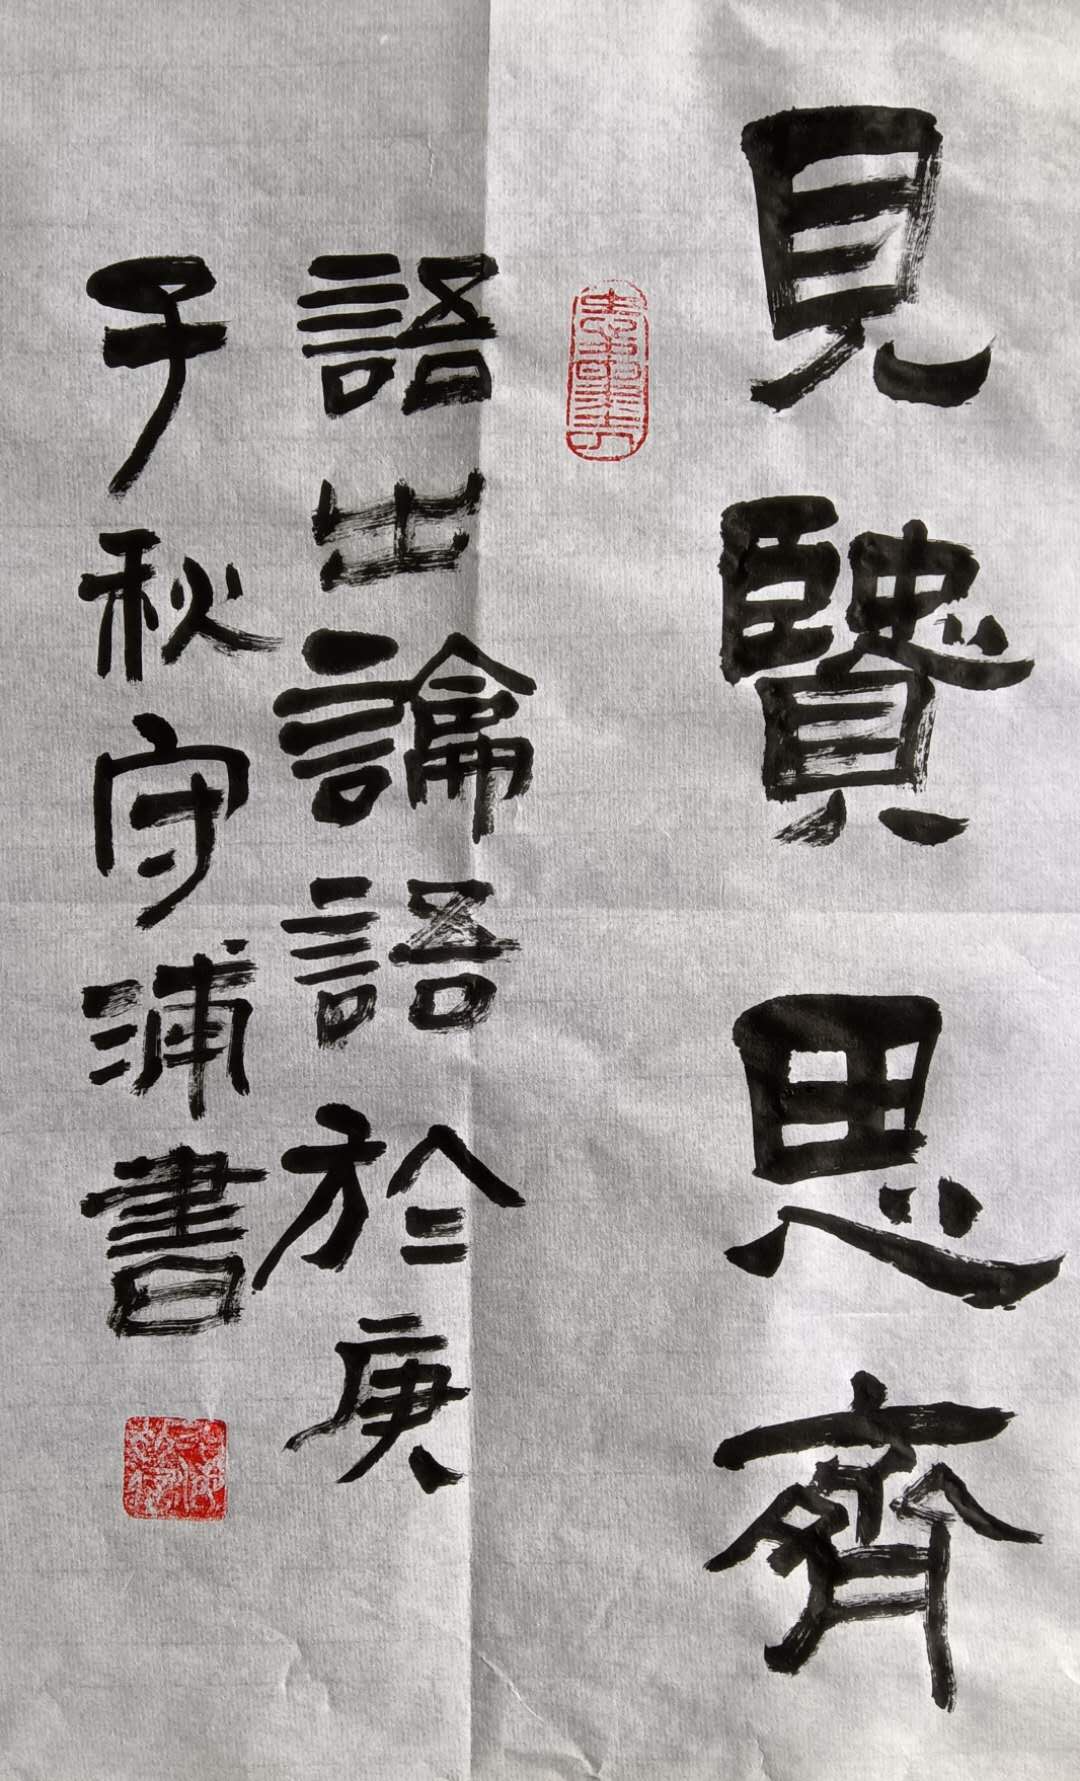 見贒思齊
語出論語於庚
子秋守浦書